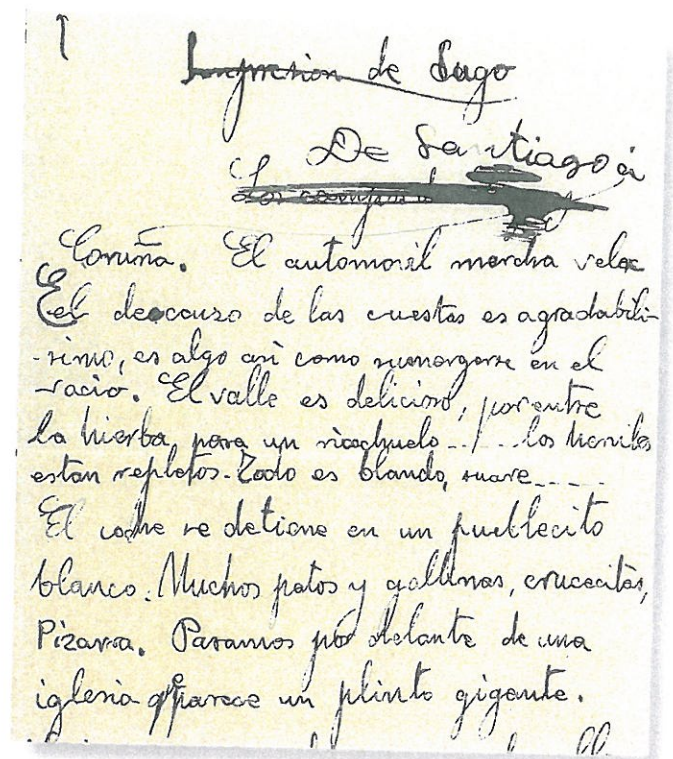 Impresion de Lugo
De Santiago á
Coruña. El automovil marcha veloz
El descenso de las cuestas es agradabili-
-simo, es algo asi como sumergirse en el
vacio. El valle es delicioso, por entre
la hierba, pasa un riachuelo../...los herviles
estan repletos. Todo es blando, suave.....
El coche se detiene en un pueblecito
blanco. Muchos patos y gallinas, crucecitas,
Pizarra. Pasamos por delante de una
iglesia q parece un plinto gigante.